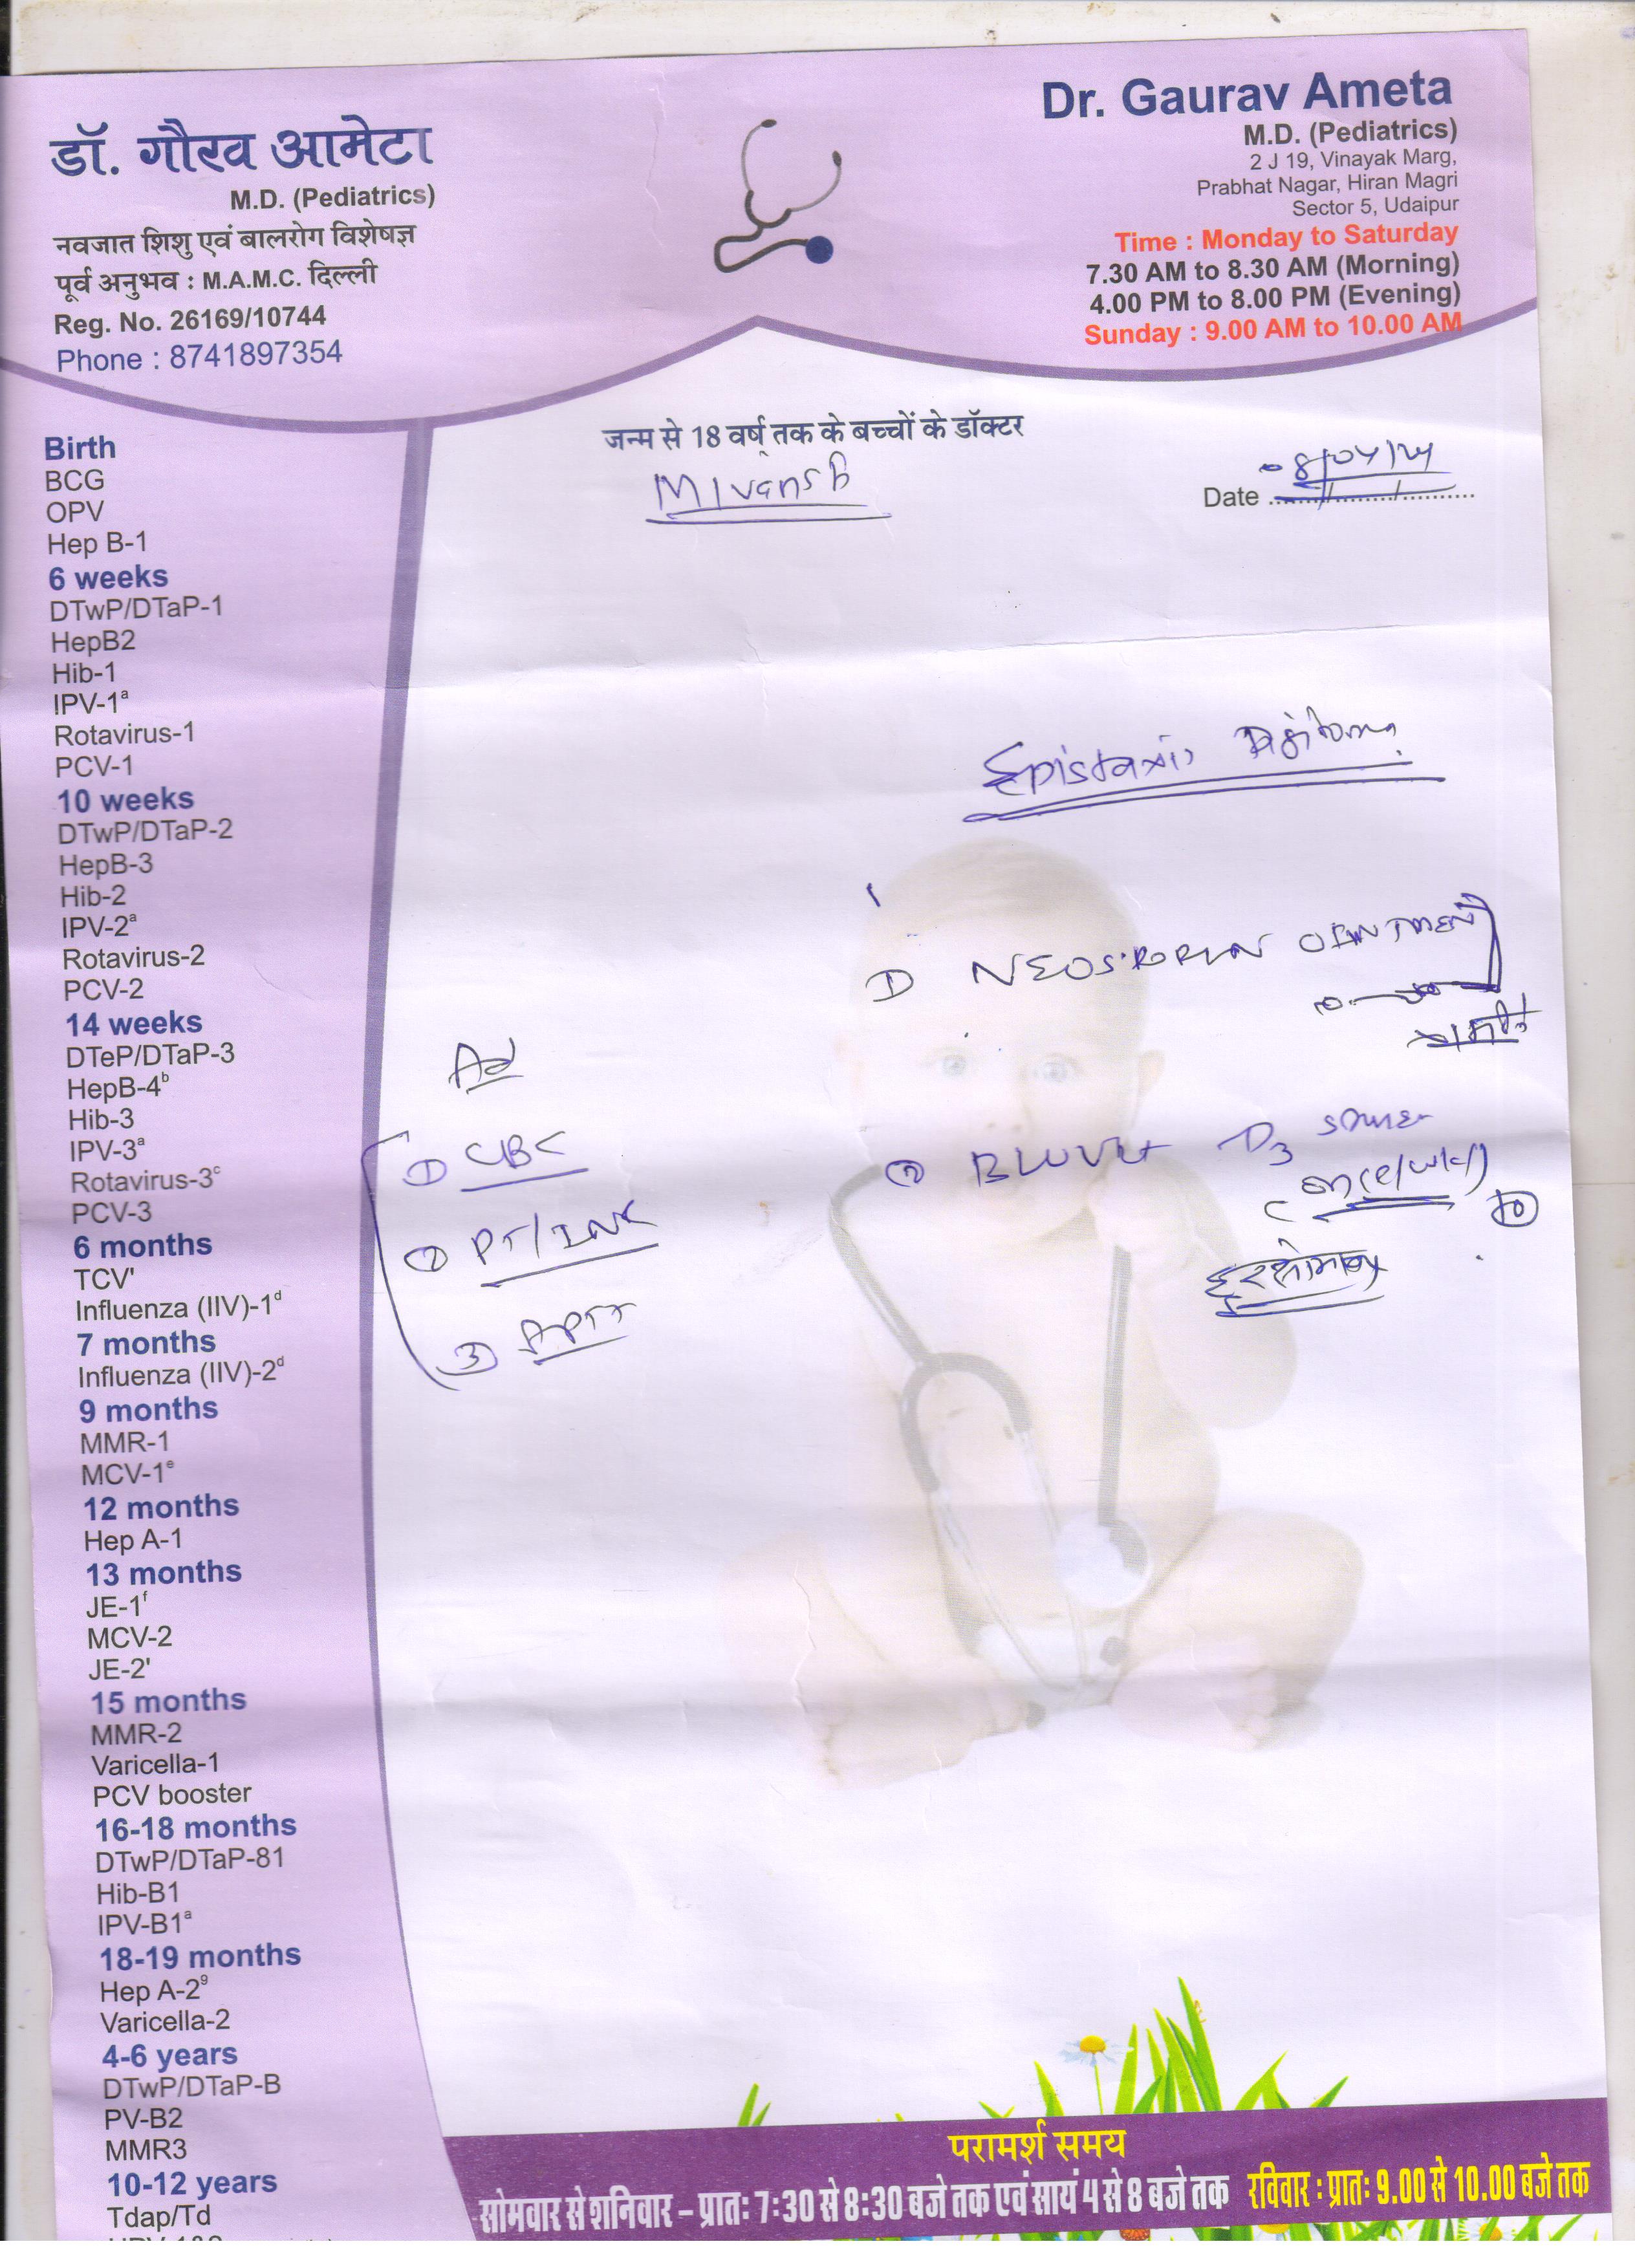 डॉ. गौरव आमेटा
M.D. (Pediatrics)
नवजात शिशु एवं बालरोग विशेषज्ञ
पूर्व अनुभव : M.A.M.C. दिल्ली
Reg. No. 26169/10744
Phone : 8741897354
Dr. Gaurav Ameta
M.D. (Pediatrics)
2 J 19, Vinayak Marg,
Prabhat Nagar, Hiran Magri
Sector 5, Udaipur
Time : Monday to Saturday
7.30 AM to 8.30 AM (Morning)
4.00 PM to 8.00 PM (Evening)
Sunday : 9.00 AM to 10.00 AM
जन्म से 18 वर्ष तक के बच्चों के डॉक्टर
Mivansh
Date 8/04/24
Birth
BCG
OPV
Hep B-1
6 weeks
DTwP/DTaP-1
HepB2
Hib-1
IPV-1ª
Rotavirus-1
PCV-1
10 weeks
DTwP/DTaP-2
HepB-3
Hib-2
IPV-2ª
Rotavirus-2
PCV-2
14 weeks
DTeP/DTaP-3
HepB-4ᵇ
Hib-3
IPV-3ª
Rotavirus-3ᶜ
PCV-3
6 months
TCV'
Influenza (IIV)-1ᵈ
7 months
Influenza (IIV)-2ᵈ
9 months
MMR-1
MCV-1ᵉ
12 months
Hep A-1
13 months
JE-1ᶠ
MCV-2
JE-2'
15 months
MMR-2
Varicella-1
PCV booster
16-18 months
DTwP/DTaP-81
Hib-B1
IPV-B1ª
18-19 months
Hep A-2⁹
Varicella-2
4-6 years
DTwP/DTaP-B
PV-B2
MMR3
10-12 years
Tdap/Td
Epistaxis
① NEOSPORIN OINTMENT
Ad
① CBC
② PT/INR
③ APTT
② D3
(once/wk)
हर सोमवार
परामर्श समय
सोमवार से शनिवार – प्रातः 7:30 से 8:30 बजे तक एवं सायं 4 से 8 बजे तक रविवार : प्रातः 9.00 से 10.00 बजे तक